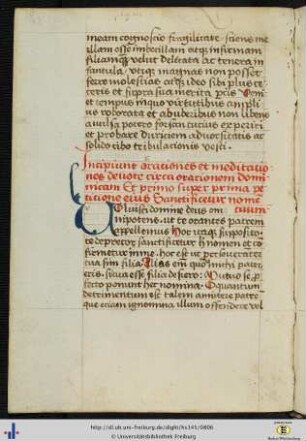 meam cognoscis fragilitatē scious me
illam esse imbecillam atq; infirmam
filiamq; velut delicata ac tenera in
fantula utiq; magnas non posset
ferre molestias atq; ideo sibi plus ce
teris et supra sua merita prius Veni
et tempus in quo virtutibus ampli
us roborata et ab uberibus non
avulsa potero
et probare duriciem adversitatis ac
solido cibo tribulationis vesci
Incipiunt orationes et meditatio
nes devote circa orationem domi
nicam Et primo super prima pe
ticione eius Sanctificetur nomē
tuum
Qui dñe deus om
nipotens ut te orantes patrem
appellemus Hor utaq; supposito
te deprecor sanctificetur hͦ nomen et co
firmetur in me hoc est ut perseverāter
tua sim filia Alias em quō michi pater
eris si tua esse filia desiero Mutuo se p
fecto ponunt hec nomina O quantum
detrimentum esset talem amittere patrē
que etiam ignominia illum offendere vel
http://dl.ub.uni-freiburg.de/diglit/hs141/0806
© Universitätsbibliothek Freiburg